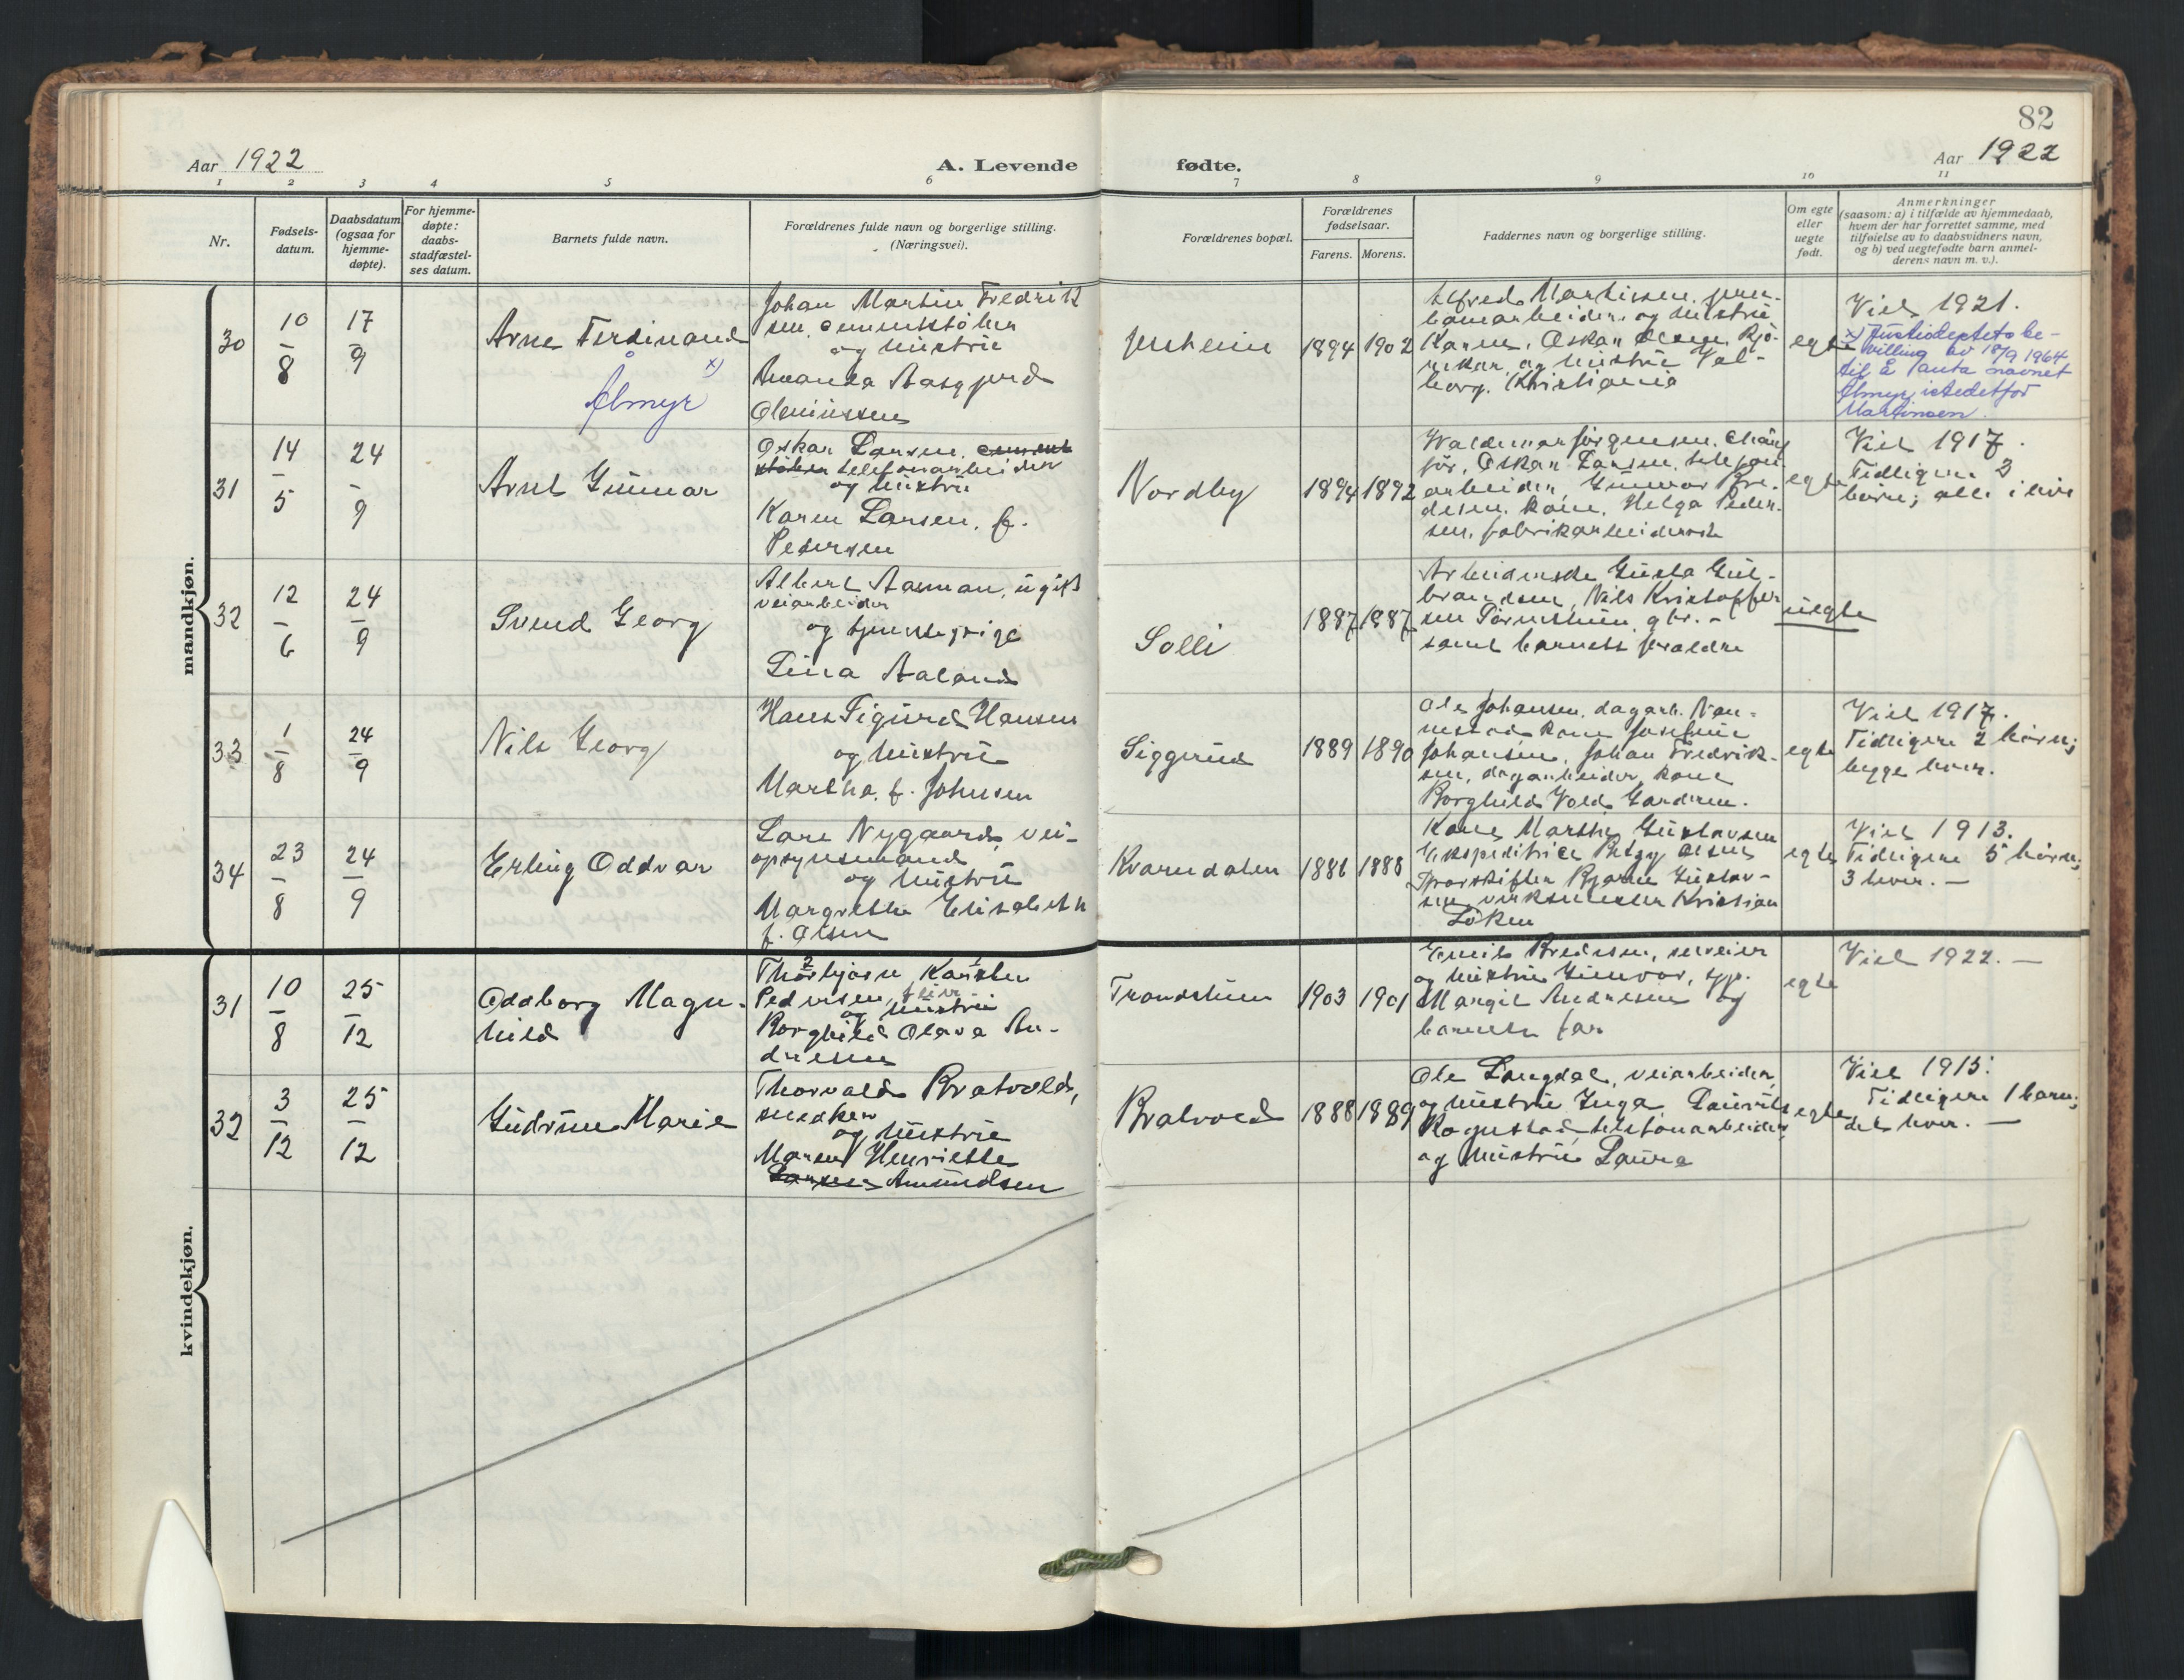 82
Aar 1922
A. Levende
fødte.
Aar 1922
1 2 3 4 5 6 7 8 9 10 11
Nr.
Fødsels-
datum.
Daabsdatum
(ogsaa for
hjemme-
døpte).
For hjemme-
døpte:
daabs-
stadfæstel-
ses datum.
Barnets fulde navn.
Forældrenes fulde navn og borgerlige stilling.
(Næringsvei).
Forældrenes bopæl.
Forældrenes
fødselsaar.
Farens. Morens.
Faddernes navn og borgerlige stilling.
Om egte
eller
uegte
født.
Anmerkninger
(saasom: a) i tilfælde av hjemmedaab,
hvem der har forrettet samme, med
tilføielse av to daabsvidners navn,
og b) ved uegtefødte barn anmel-
derens navn m. v.).
mandkjøn.
30
10
8
17
9
Arne Ferdinand
x)
Åmyr
Johan Martin Fredrik
sen, cementstøber
og hustru
Amanda Aasgjerd
Oleniussen
Jessheim
1894
1902
Alfred Martinsen, jern-
banearbeider og hustru
Karen, Oskar Olsen,
og hustru Val-
borg, Kristiania
egte
Viet 1921.
x) Justisdeptets be-
villing av 18/9 1964
til å anta navnet
Åmyr istedetfor
Martinsen.
31
14
5
24
9
Arnt Gunnar
Oskar Larsen, cement
støber telefonarbeider
og hustru
Karen Larsen, f.
Pedersen
Nordby
1894
1892
Waldemar Jörgensen, chauf
för, Oskar Larsen, telefon
arbeider, Gunvor Bre-
desen, kone, Helga Peder-
sen, fabrikarbeiderske
egte
Viet 1917.
Tidligere 3
børn; alle i live
32
12
6
24
9
Svend Georg
Albert Aaman, ugift
veiarbeider
og tjenestepige
Lina Aaland
Solli
1887
1887
Arbeiderske Gusta Gul-
brandsen, Nils Kristoffer
sen gbr. -
samt barnets forældre
uegte
33
1
8
24
9
Nils Georg
Hans Sigurd Hansen
og hustru
Martha, f. Johnsen
Siggerud
1889
1890
Ole Johansen, dagarb. Nan-
nestad kone Josefine
Johansen, Johan Fredrik-
sen, dagarbeider, kone
Borghild Vold Garderen.
egte
Viet 1917.
Tidligere 2 børn;
begge lever.
34
23
8
24
9
Erling Oddvar
Lars Nygaard, vei-
opsynsmand
og hustru
Margrethe Elisabeth
f. Olsen
Kvarndalen
1886
1888
Kone Marthe Gustavsen
Ekspeditrice Betzy Olsen
Sporskifter Bjarne Gustav-
sen, verksmester Kristian
Løken
egte
Viet 1913.
Tidligere 5 børn;
3 lever. —
kvindekjøn.
31
10
8
25
12
Oddborg Magn-
hild
2 1
Thorbjørn Karsten
Pedersen, feier
og hustru
Borghild Olava An-
dresen
Trondshuen
1903
1901
Emil Bredesen, serveier
og hustru Gunvor, syp.
Margit Andresen og
barnets far
egte
Viet 1922. —
32
3
12
25
12
Gudrun Marie
Thorvald Bratvold,
snedker
og hustru
Maren Henriette
Larsen Amundsen
Bratvold
1888
1889
Ole Langdal, veiarbeider,
og hustru Inga, Lauritz
Rognstad, telefonarbeider,
og hustru Laura
egte
Viet 1915.
Tidligere 1 barn;
det lever. —